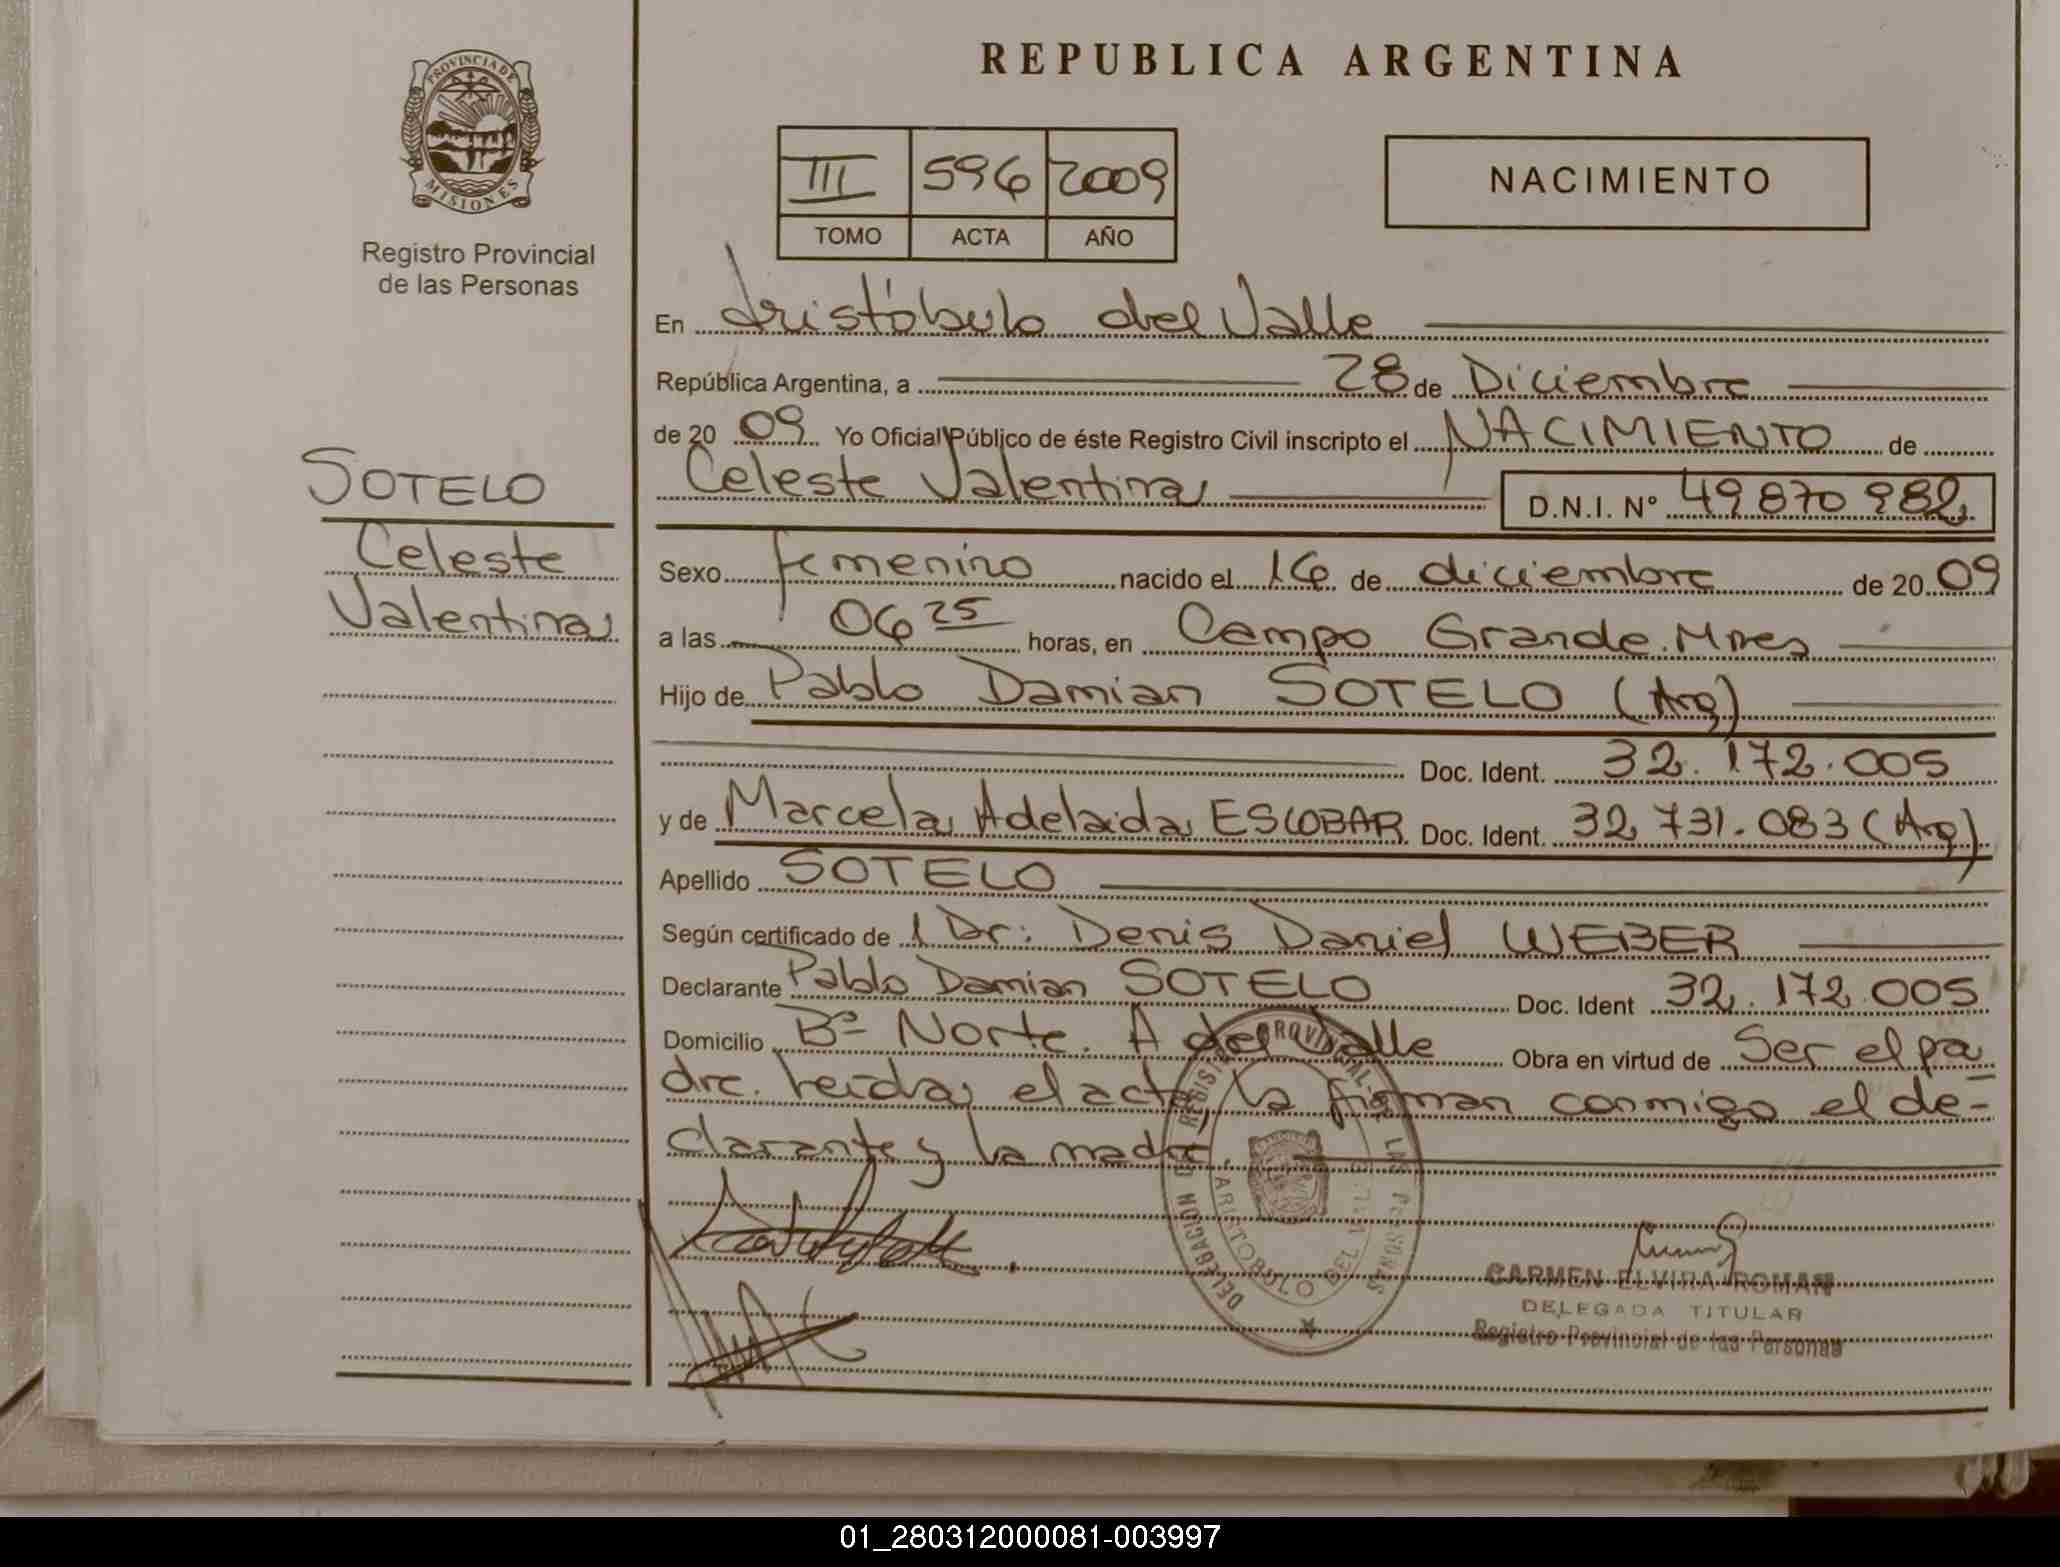 PROVINCIA DE
MISIONES
Registro Provincial
de las Personas
SOTELO
Celeste
Valentina
REPUBLICA ARGENTINA
III 596 2009
TOMO ACTA AÑO
NACIMIENTO
En Aristóbulo del Valle
República Argentina, a 28 de Diciembre
de 20 09 Yo Oficial Público de éste Registro Civil inscripto el NACIMIENTO de
Celeste Valentina D.N.I. N° 49 870 982
Sexo femenino nacido el 16 de diciembre de 20 09
a las 06 25 horas, en Campo Grande. Mnes
Hijo de Pablo Damian SOTELO (Arg)
Doc. Ident. 32.172.005
y de Marcela Adelaida ESCOBAR Doc. Ident. 32.731.083 (Arg)
Apellido SOTELO
Según certificado de 1 Dr: Denis Daniel WEBER
Declarante Pablo Damian SOTELO Doc. Ident 32.172.005
Domicilio Bº Norte. A del Valle Obra en virtud de Ser el pa
dre. Leida el acta, la firman conmigo el de-
clarante y la madre.
DELEGACION DEL REGISTRO PROVINCIAL DE LAS PERSONAS
ARISTOBULO DEL VALLE
CARMEN ELVIRA ROMAN
DELEGADA TITULAR
Registro Provincial de las Personas
01_280312000081-003997